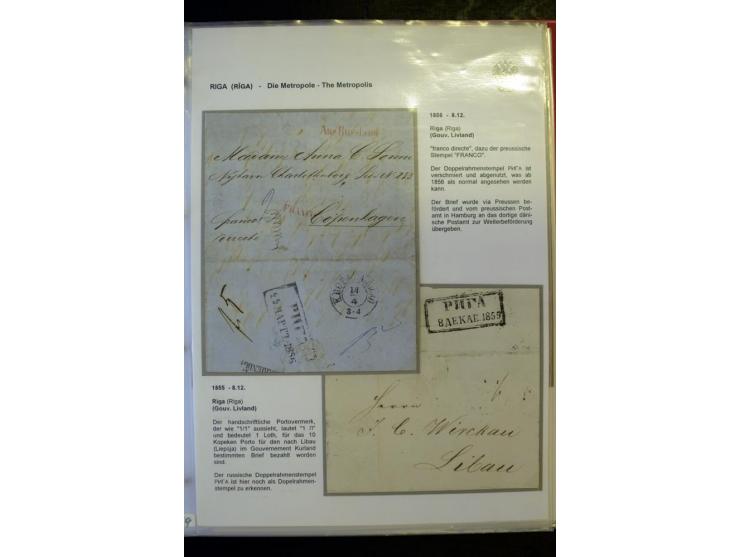 RIGA (RĪGA) - Die Metropole - The Metropolis
1856 - 8.12.
Riga (Riga)
(Gouv. Livland)
"franco directe", dazu der preussische
Stempel "FRANCO".
Der Doppelrahmenstempel РИГА ist
verschmiert und abgenutzt, was ab
1856 als normal angesehen werden
kann.
Der Brief wurde via Preussen be-
fördert und vom preussischen Post-
amt in Hamburg an das dortige däni-
sche Postamt zur Weiterbeförderung
übergeben.
Madame Anna C.
Copenhagen
franco
FRANCO
14
4
3-4
РИГА
МАРТ. 1856
РИГА
8 ДЕКАБ. 1855
Herrn
J. C. Wirckau
Libau
1855 - 8.12.
Riga (Riga)
(Gouv. Livland)
Der handschriftliche Portovermerk,
der wie "1/1" aussieht, lautet "1 Л"
und bedeutet 1 Loth, für das 10
Kopeken Porto für den nach Libau
(Liepāja) im Gouvernement Kurland
bestimmten Brief bezahlt worden
sind.
Der russische Doppelrahmenstempel
РИГА ist hier noch als Dopelrahmen-
stempel zu erkennen.